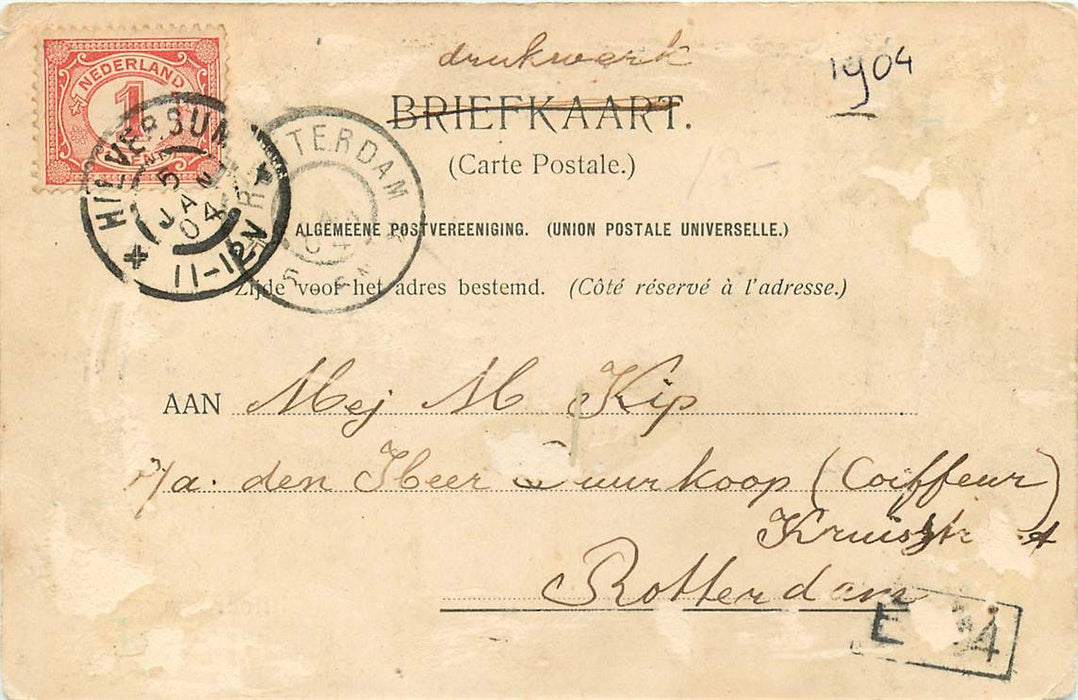 drukwerk
1904
BRIEFKAART.
(Carte Postale.)
NEDERLAND
1
HILVERSUM
5 JAN 04
11-12V
ROTTERDAM
ALGEMEENE POSTVEREENIGING. (UNION POSTALE UNIVERSELLE.)
Zijde voor het adres bestemd. (Côté réservé à l'adresse.)
AAN Mej M Kip
p/a. den Heer uurkoop (Coiffeur)
Rotterdam
E 34